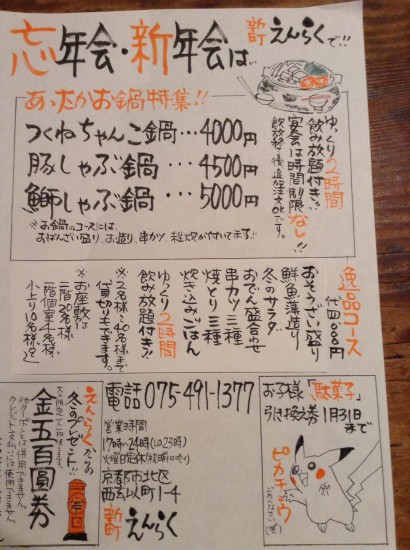 忘年会・新年会は…
新町えんらくで!!
あったかお鍋特集!!
つくねちゃんこ鍋…4000円
豚しゃぶ鍋…4500円
鰤しゃぶ鍋…5000円
※お鍋のコースには、
おばんざい盛り、お造り、串かつ、雑炊が付いてます!!
ゆっくり2時間
飲み放題付き!!
宴会は時間制限
なし!!
飲放終了後追加注文OKです。
逸品コース
おそうざい盛り
鮮魚藻造り
冬のサラダ
おでん盛合わせ
串カツ三種
焼とり三種
炊き込みごはん
ゆっくり2時間
飲み放題付き!!
※2名様〜40名様まで
貸切りもできます。
※お座敷は
二階20名様、
一階個室4名様、
小上り10名様。
えんらくからの
冬のプレゼント!!
金五百圓券
他クーポンとは併用できません。
クレジット支払いには使用できません。
電話 075-491-1377
営業時間
17時〜24時(Lo23時)
火曜日定休(祝明日休り)
京都市北区
西玄以町1-4
新町えんらく
お子様「駄菓子」
引き換え券 1月31日
まで
ピカチュウ